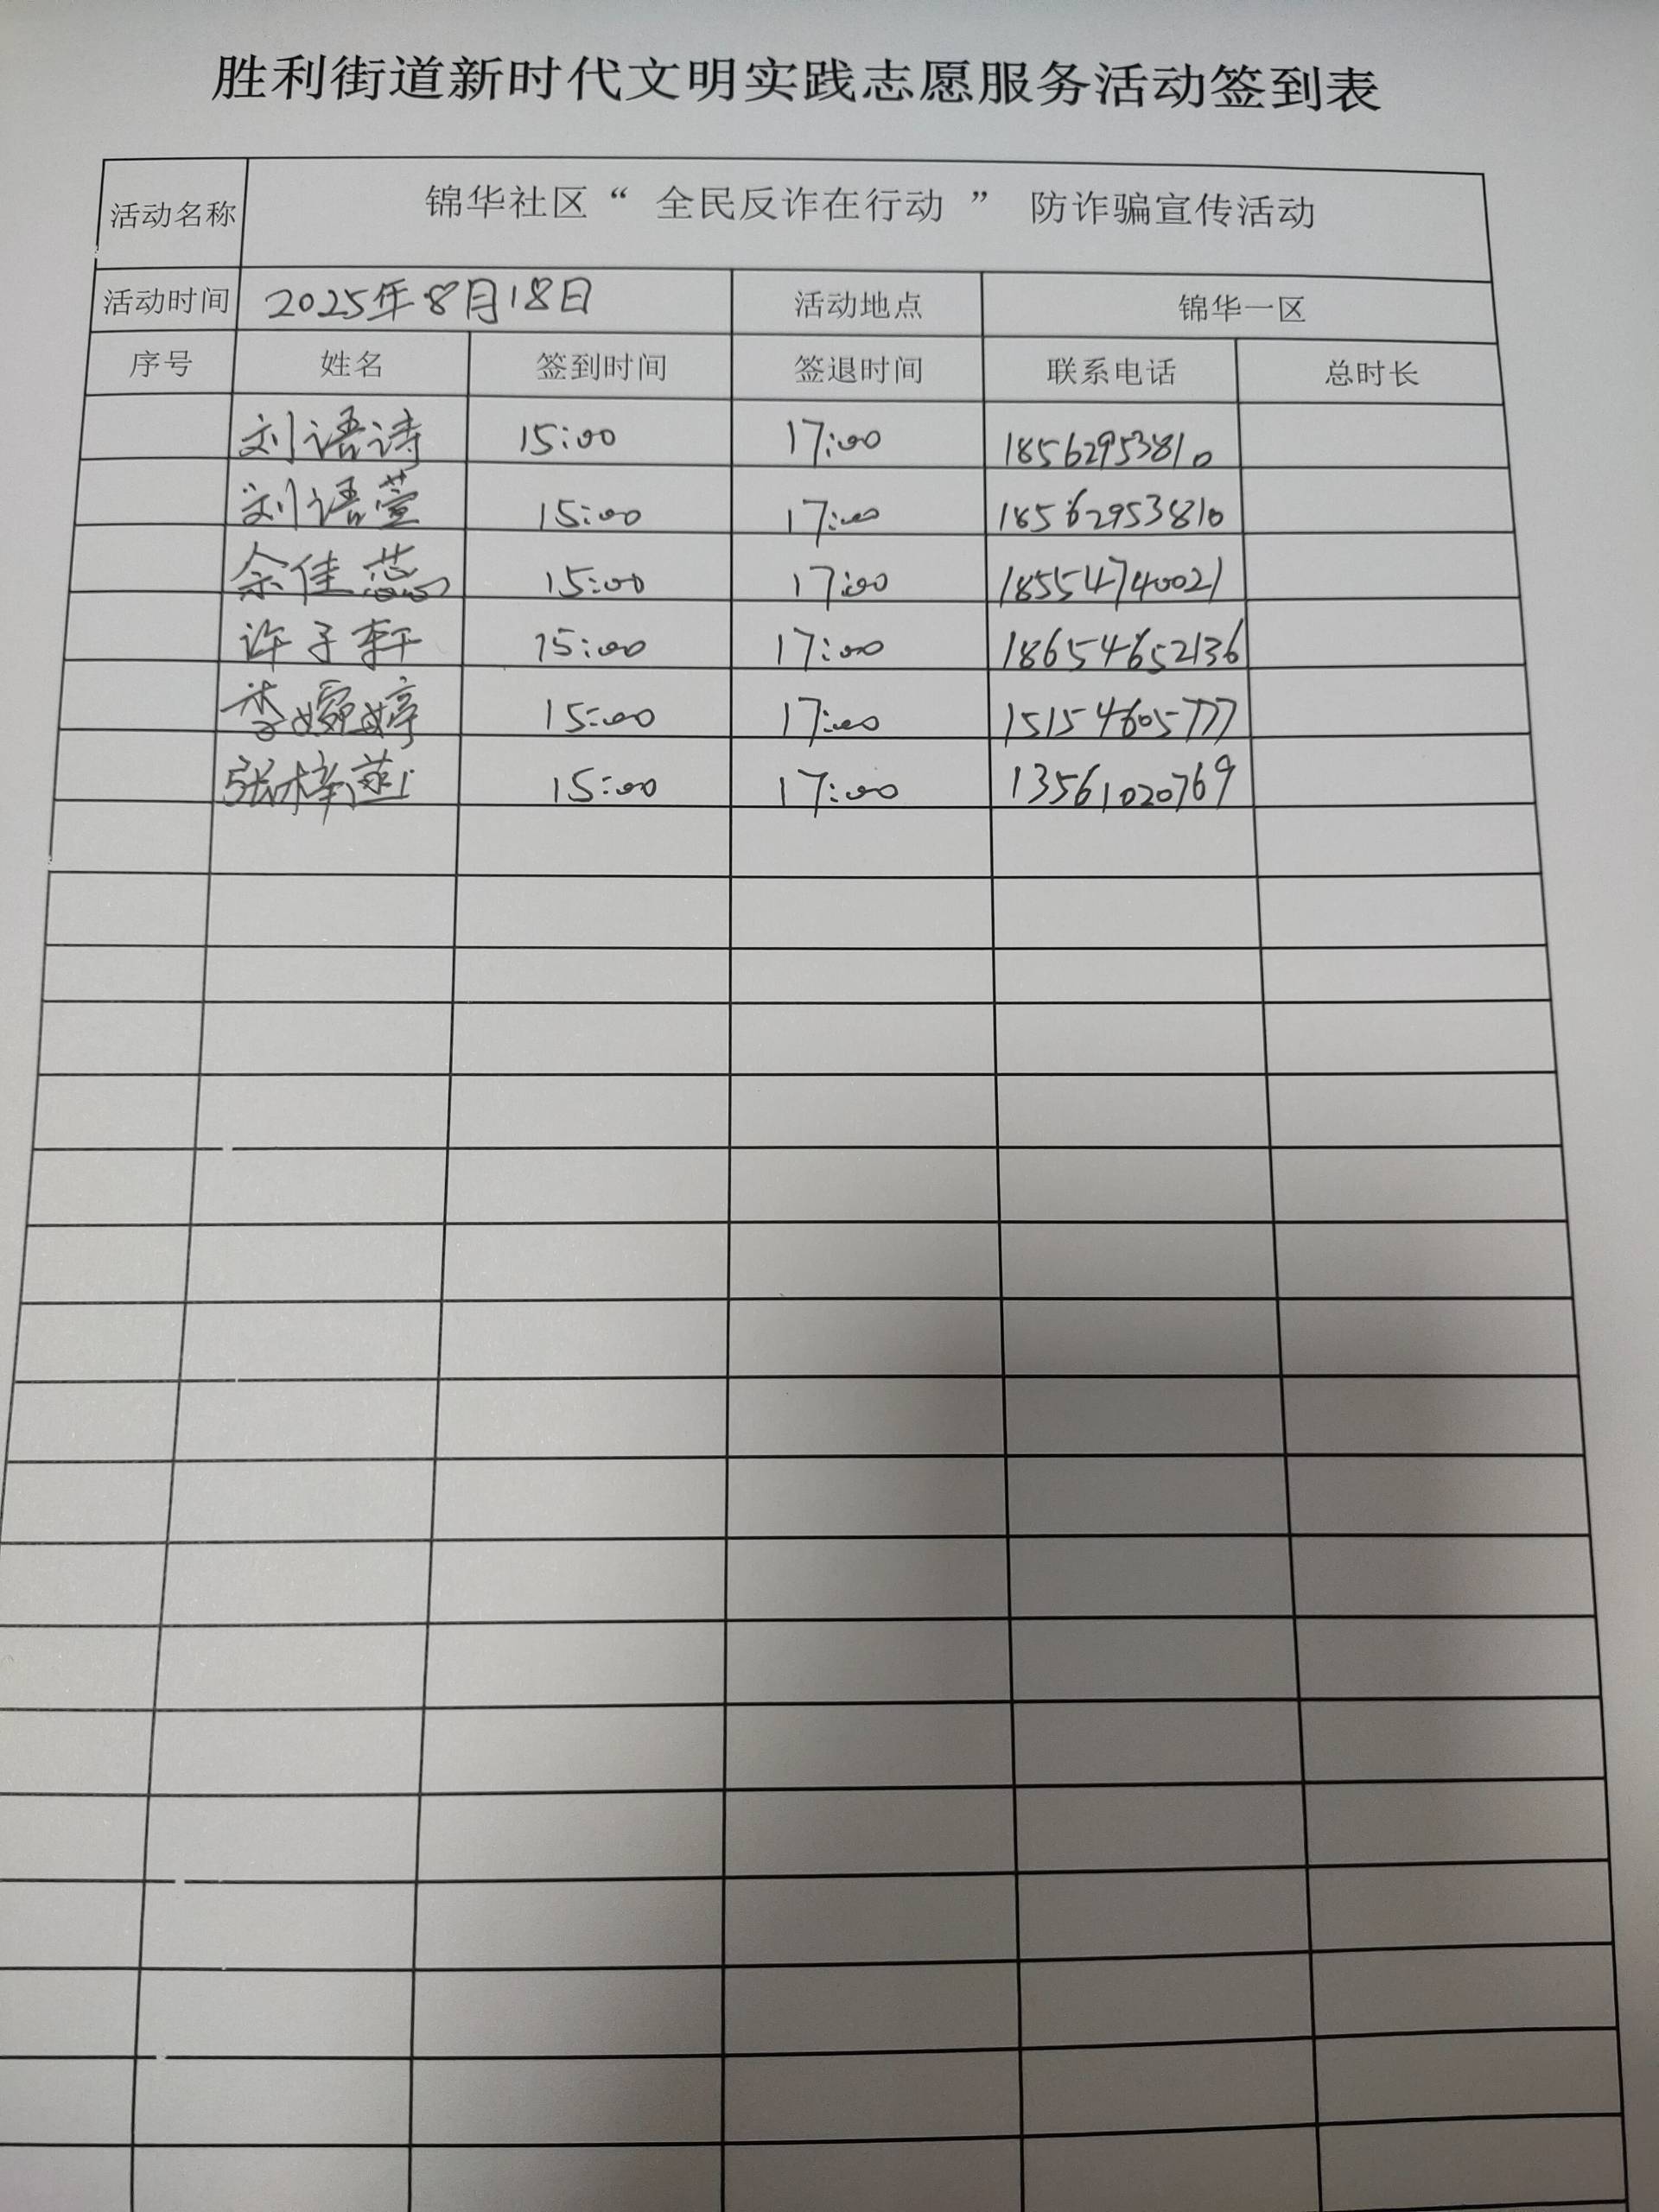 胜利街道新时代文明实践志愿服务活动签到表
活动名称 锦华社区“ 全民反诈在行动 ” 防诈骗宣传活动
活动时间 2025年8月18日 活动地点 锦华一区
序号 姓名 签到时间 签退时间 联系电话 总时长
刘语诗 15:00 17:00 18562953810
刘语萱 15:00 17:00 18562953810
余佳蕊 15:00 17:00 18554740021
许子轩 15:00 17:00 18654652136
李婉婷 15:00 17:00 15154605777
张梓 15:00 17:00 13561020769